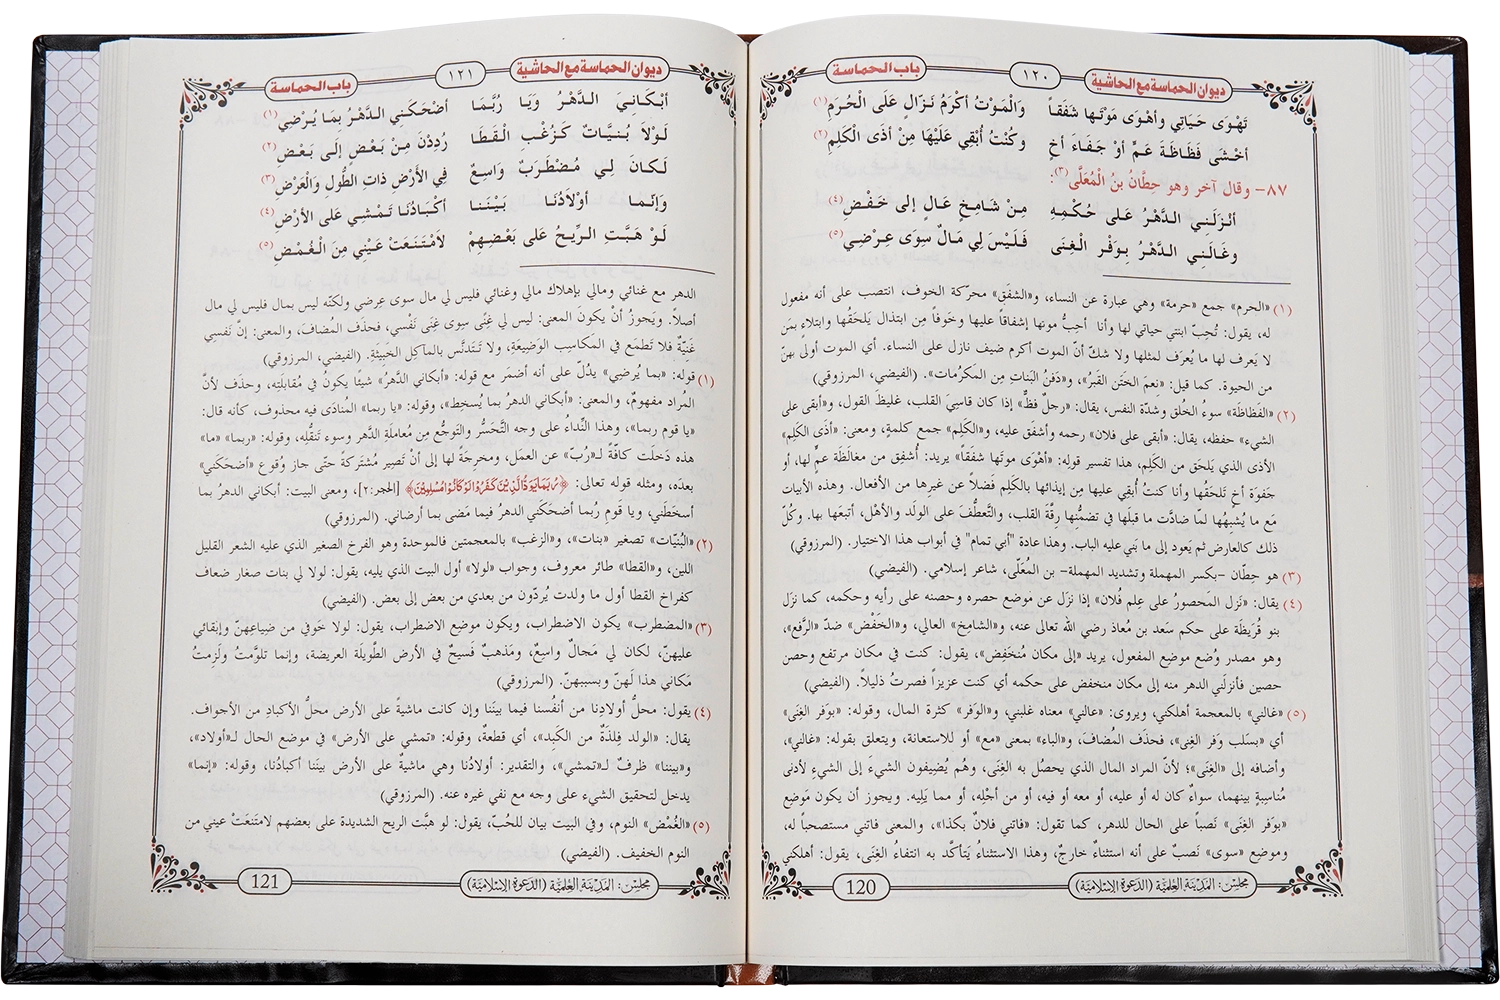 ديوان الحماسة مع الحاشية ١٢٠ باب الحماسة
تَهْوَى حَيَاتِي وأهْوَى مَوْتَها شَفَقاً وَالْمَوْتُ أكْرَمُ نَزّالٍ عَلَى الْحُرَمِ(١)
أخْشَى فَظَاظَةَ عَمٍّ أوْ جَفَاءَ أخٍ وكُنْتُ أُبْقِي عَلَيْهَا مِنْ أذَى الْكَلِمِ(٢)
٨٧- وقال آخر وهو حِطّانُ بنُ الْمُعَلّى(٣):
أنْزَلَنِي الدَّهْرُ عَلَى حُكْمِهِ مِنْ شَامِخٍ عَالٍ إلى خَفْضِ(٤)
وغَالَنِي الدَّهْرُ بِوَفْرِ الْغِنَى فَلَيْسَ لِي مَالٌ سِوَى عِرْضِي(٥)
(١) «الحرم» جمع «حرمة» وهي عبارة عن النساء، و«الشفَق» محرّكة الخوف، انتصب على أنه مفعول
له، يقول: تُحِبّ ابنتي حياتي لها وأنا أحِبُّ موتها إشفاقاً عليها وخَوفاً مِن ابتذال يَلحَقُها وابتلاءٍ بمَن
لا يَعرف لها ما يُعرَف لمثلها ولا شكّ أنّ الموت أكرم ضيف نازل على النساء. أي الموت أولى بهنّ
من الحيوة. كما قيل: «نِعمَ الخَتَن القَبرُ»، و«دَفنُ البَناتِ مِن المَكرُمات». (الفيضي، المرزوقي)
(٢) «الفظاظة» سوءُ الخُلق وشدّة النفس، يقال: «رجلٌ فظٌّ» إذا كان قاسِيَ القلب، غليظَ القول، و«أبقى على
الشيء» حفظه، يقال: «أبقى على فلان» رحمه وأشفَق عليه، و«الكَلِم» جمع كلمةٍ، ومعنى: «أذَى الكَلِم»
الأذى الذي يَلحَق من الكَلِم، هذا تفسير قوله: «أهْوَى موتَها شفقاً» يريد: أُشفِق من مغالَظَة عمٍّ لها، أو
جَفوَة أخٍ تَلحَقُها وأنا كنتُ أُبقِي عليها مِن إيذائها بالكَلِم فضلاً عن غيرها من الأفعال. وهذه الأبيات
مَع ما يُشبِهُها لمّا ضادَّت ما قبلَها في تضمُّنها رِقّةَ القلب، والتَّعطُّفَ على الولَد والأهْل، أتبَعَها بها. وكُلّ
ذلك كالعارض ثم يَعود إلى ما بَني عليه الباب. وهذا عادة "أبي تمام" في أبواب هذا الاختيار. (المرزوقي)
(٣) هو حِطّان –بكسر المهملة وتشديد المهملة– بن المُعَلّى، شاعر إسلامي. (الفيضي)
(٤) يقال: «نَزل المَحصورُ على عِلم فُلان» إذا نزَل عن مَوضع حصره وحصنه على رأيه وحكمه، كما نزَل
بنو قُرَيظَة على حكم سَعد بن مُعاذ رضي الله تعالى عنه، و«الشامِخ» العالي، و«الخَفْض» ضدّ «الرَّفع»،
وهو مصدر وُضع موضِع المفعول، يريد «إلى مكان مُنخفِض»، يقول: كنت في مكان مرتفع وحصن
حصين فأنزلَني الدهر منه إلى مكان منخفض على حكمه أي كنت عزيزاً فصرتُ ذليلاً. (الفيضي)
(٥) «غالني» بالمعجمة أهلكني، ويروى: «عالني» معناه غلبني، و«الوَفر» كثرة المال، وقوله: «بوَفر الغِنَى»
أي «بسَلب وَفر الغِنى»، فحذَف المُضافَ، و«الباء» بمعنى «مع» أو للاستعانة، ويتعلق بقوله: «غالني»،
وأضافه إلى «الغِنَى»؛ لأنّ المراد المال الذي يحصُل به الغِنَى، وهُم يُضِيفون الشيءَ إلى الشيءِ لأدنى
مُناسِبةٍ بينهما، سواءٌ كان له أو عليه، أو معه أو فيه، أو من أجْلِه، أو مما يَلِيه. ويجوز أن يكون مَوضِع
«بوَفر الغِنَى» نَصباً على الحال للدهر، كما تقول: «فاتني فلانٌ بكذا»، والمعنى فاتني مستصحباً له،
وموضِع «سوى» نَصبٌ على أنه استثناءٌ خارجٌ، وهذا الاستثناءُ يَتأكّد به انتفاءُ الغِنَى، يقول: أهلكني
مجلس: المدينة العلمية (الدعوة الإسلامية) 120
ديوان الحماسة مع الحاشية ١٢١ باب الحماسة
أبْكَانِيَ الدَّهْرُ وَيَا رُبَّمَا أضْحَكَنِي الدَّهْرُ بِمَا يُرْضِي(١)
لَوْلاَ بُنَيّاتٌ كَزُغْبِ الْقَطَا رُدِدْنَ مِنْ بَعْضٍ إلَى بَعْضِ(٢)
لَكَانَ لِي مُضْطَرَبٌ وَاسِعٌ فِي الأَرْضِ ذَاتِ الطُّولِ وَالْعَرْضِ(٣)
وَإنّمَا أوْلاَدُنَا بَيْنَنَا أكْبَادُنَا تَمْشِي عَلَى الأرْضِ(٤)
لَوْ هَبَّتِ الرِّيحُ عَلَى بَعْضِهِمِ لاَمْتَنَعَتْ عَيْنِي مِنَ الْغُمْضِ(٥)
الدهر مع غنائي ومالي بإهلاك مالي وغنائي فليس لي مال سوى عِرضي ولكنّه ليس بمال فليس لي مال
أصلاً. ويَجوزُ أنْ يكونَ المعنى: ليس لي غِنًى سِوى غِنَى نَفْسي، فحذَف المُضافَ، والمعنى: إنّ نَفسِي
غَنِيّةٌ فلا تَطمَع في المكاسِب الوَضِيعَة، ولا تَتَدنَّس بالمآكِل الخَبيثَةِ. (الفيضي، المرزوقي)
(١) قوله: «بما يُرضي» يدُلّ على أنه أضمَر مع قوله: «أبكاني الدَّهرُ» شيئًا يكونُ في مُقابلَتِه، وحذَف لأنَّ
المُراد مفهومٌ، والمعنى: «أبكاني الدهرُ بما يُسخِط»، وقوله: «يا ربما» المُنادَى فيه محذوف، كأنه قال:
«يا قوم ربما»، وهذا النِّداءُ على وجه التَّحَسُّر والتَوجُّع مِن مُعاملَةِ الدَّهر وسوء تَنقُّله، وقوله: «ربما» «ما»
هذه دَخلَت كافّةً لـ«رُبّ» عن العمَل، ومخرجَة لها إلى أنْ تَصِير مُشتركةً حتّى جاز وُقوع «أضحَكَني»
بعدَه، ومثله قوله تعالى: ﴿رُبَمَا يَوَدُّ الَّذِيْنَ كَفَرُوْا لَوْ كَانُوْا مُسْلِمِيْنَ﴾ [الحجر:٢]، ومعنى البيت: أبكاني الدهرُ بما
أسخَطَني، ويا قومِ رُبما أضحَكَني الدهرُ فيما مَضى بما أرضاني. (المرزوقي)
(٢) «البُنَيّات» تصغير «بنات»، و«الزغب» بالمعجمتين فالموحدة وهو الفرخ الصغير الذي عليه الشعر القليل
اللين، و«القطا» طائر معروف، وجواب «لولا» أول البيت الذي يليه، يقول: لولا لي بنات صغار ضعاف
كفراخ القطا أول ما ولدت يُردّون من بعدي من بعض إلى بعض. (الفيضي)
(٣) «المضطرب» يكون الاضطراب، ويكون موضِع الاضطراب، يقول: لولا خَوفي من ضِياعِهنّ وإبقائي
عليهنّ، لكان لي مَجالٌ واسِعٌ، ومَذهبٌ فَسيحٌ في الأرض الطَّويلَة العريضة، وإنما تلوَّمتُ ولَزِمتُ
مَكاني هذا لَهنّ وبسببهنّ. (المرزوقي)
(٤) يقول: محلُّ أولادِنا من أنفُسنا فيما بينَنا وإن كانت ماشيةً على الأرض محلُّ الأكبادِ من الأجواف.
يقال: «الولد فِلذَةٌ من الكَبِد»، أي قطعةٌ، وقوله: «تمشي على الأرض» في موضع الحال لـ«أولاد»،
و«بيننا» ظرفٌ لـ«تمشي»، والتقدير: أولادُنا وهي ماشيةٌ على الأرض بينَنا أكبادُنا، وقوله: «إنما»
يدخل لتحقيق الشيء على وجه مع نفي غيره عنه. (المرزوقي)
(٥) «الغُمْض» النوم، وفي البيت بيان للحُبّ، يقول: لو هبَّت الريح الشديدة على بعضهم لامتَنَعَتْ عيني من
النوم الخفيف. (الفيضي)
مجلس: المدينة العلمية (الدعوة الإسلامية) 121